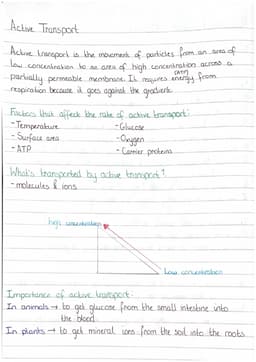 Active Transport
Active transport is the movement of particles from an area of
low concentration to an area of high concentration across a
partially permeable membrane. It requires energy (ATP) from
respiration because it goes against the gradient.
Factors that affect the rate of active transport:
- Temperature - Glucose
- Surface area - Oxygen
- ATP - Carrier proteins
What's transported by active transport?
- molecules & ions
high concentration
Low concentration
Importance of active transport:
In animals → to get glucose from the small intestine into
the blood
In plants → to get mineral ions from the soil into the roots